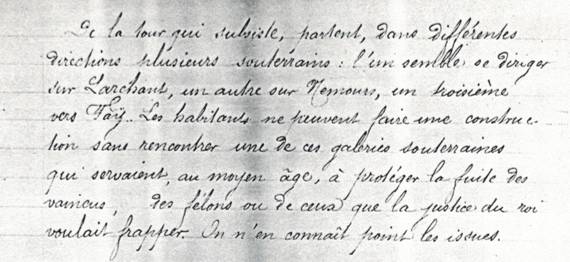 De la tour qui subsiste, partent, dans différentes
directions plusieurs souterrains : l'un semble se diriger
sur Larchant, un autre sur Nemours, un troisième
vers Faÿ. Les habitants ne peuvent faire une construc-
tion sans rencontrer une de ces galeries souterraines
qui servaient, au moyen âge, à protéger la fuite des
vaincus, des félons ou de ceux que la justice du roi
voulait frapper. On n'en connaît point les issues.